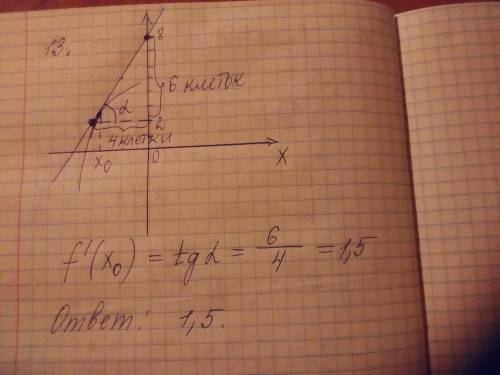 13.
8
6 клеток
α
2
4 клетки
x₀
0
x
f'(x₀) = tg α = 6/4 = 1,5
Ответ: 1,5.